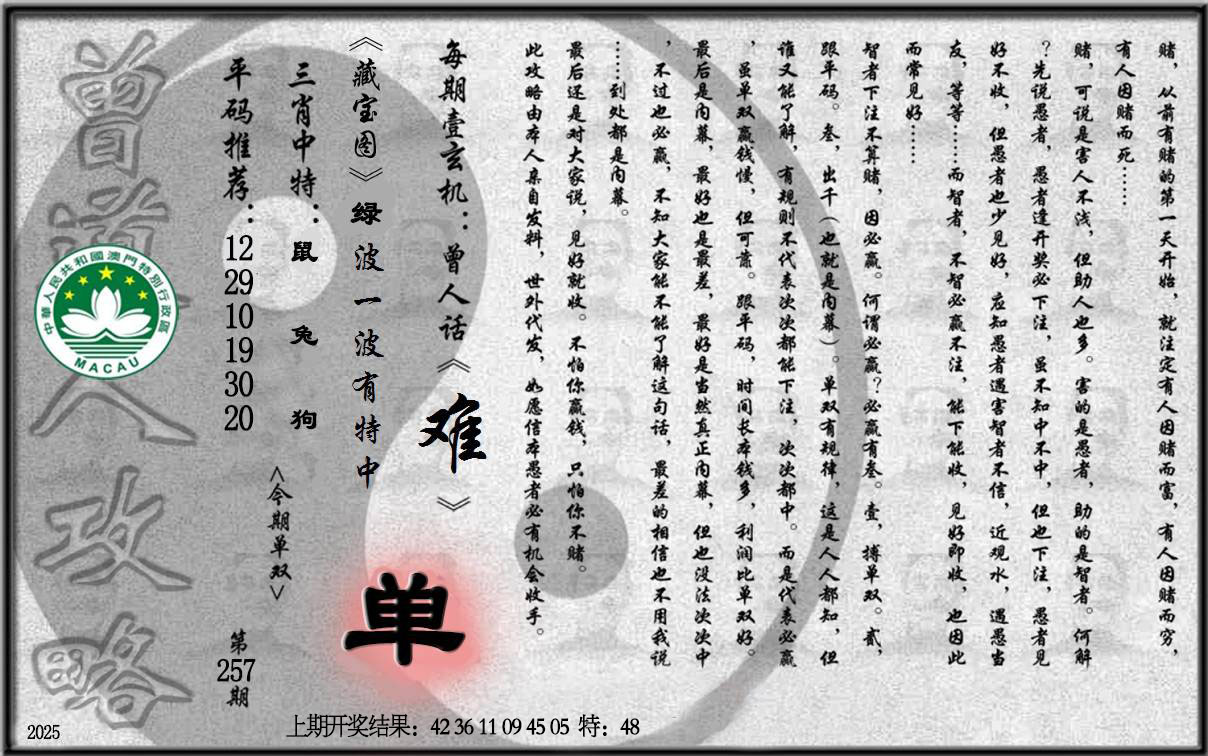 赌，从前有赌的第一天开始，就注定有人因赌而富，有人因赌而穷，
有人因赌而死……
赌，可说是害人不浅，但助人也多。害的是愚者，助的是智者。何解
？先说愚者，愚者逢开奖必下注，虽不知中不中，但也下注，愚者见
好不收，但愚者也少见好，应知愚者遇害智者不信，近观水，遇愚当
友，等等……而智者，不智必赢不注，能下能收，见好即收，也因此
而常见好……
智者下注不算赌，因必赢。何谓必赢？必赢有叁。壹，搏单双。贰，
跟平码。叁，出千（也就是内幕）。单双有规律，这是人人都知，但
谁又能了解，有规则不代表次次都能下注，次次都中。而是代表必赢
，虽单双赢钱慢，但可靠。跟平码，时间长本钱多，利润比单双好。
最后是内幕，最好也是最差，最好是当然真正内幕，但也没法次次中
，不过也必赢，不知大家能不能了解这句话，最差的相信也不用我说
……到处都是内幕。
最后还是对大家说，见好就收。不怕你赢钱，只怕你不赌。
此攻略由本人亲自发料，世外代发，如愿信本愚者必有机会收手。
每期壹玄机：曾人话《难》
《藏宝图》绿波一波有特中
单
三肖中特：鼠 兔 狗
<今期单双>
平码推荐：12 29 10 19 30 20
第257期
曾道人攻略
中華人民共和國澳門特別行政區
MACAU
2025
上期开奖结果：42 36 11 09 45 05 特：48